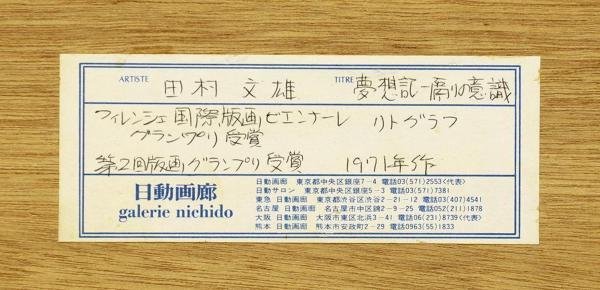 ARTISTE 田村文雄 TITRE 夢想記-隔りの意識
フィレンシェ国際版画ビエンナーレ リトグラフ
グランプリ受賞
第2回版画グランプリ受賞 1971年作
日動画廊
galerie nichido
日動画廊 東京都中央区銀座7-4 電話03(571)2553<代表>
日動サロン 東京都中央区銀座5-3 電話03(571)7381
東急 日動画廊 東京都渋谷区渋谷2-21-12 電話03(407)4541
名古屋 日動画廊 名古屋市中区錦2-9-25 電話052(211)1878
大阪 日動画廊 大阪市東区北浜3-41 電話06(231)8739<代表>
熊本 日動画廊 熊本市安政町2-29 電話0963(55)1833